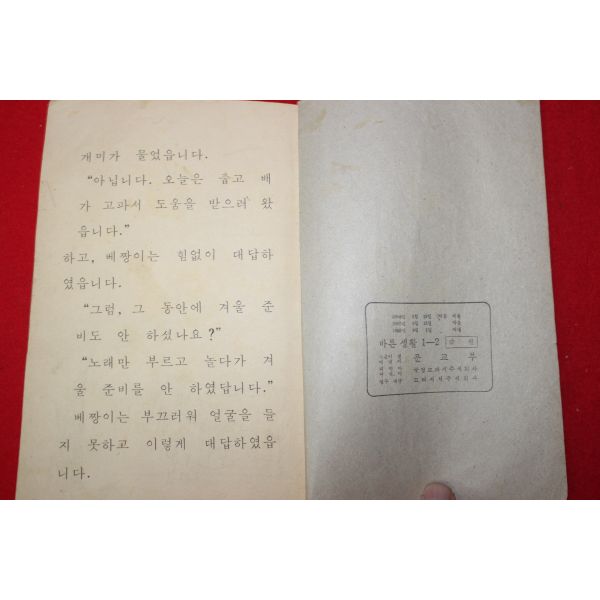 개미가 물었읍니다.
"아닙니다. 오늘은 춥고 배
가 고파서 도움을 받으러 왔
읍니다."
하고, 베짱이는 힘없이 대답하
였읍니다.
"그럼, 그 동안에 겨울 준
비도 안 하셨나요?"
"노래만 부르고 놀다가 겨
울 준비를 안 하였답니다."
베짱이는 부끄러워 얼굴을 들
지 못하고 이렇게 대답하였읍
니다.
바른 생활 1-2
문 교 부